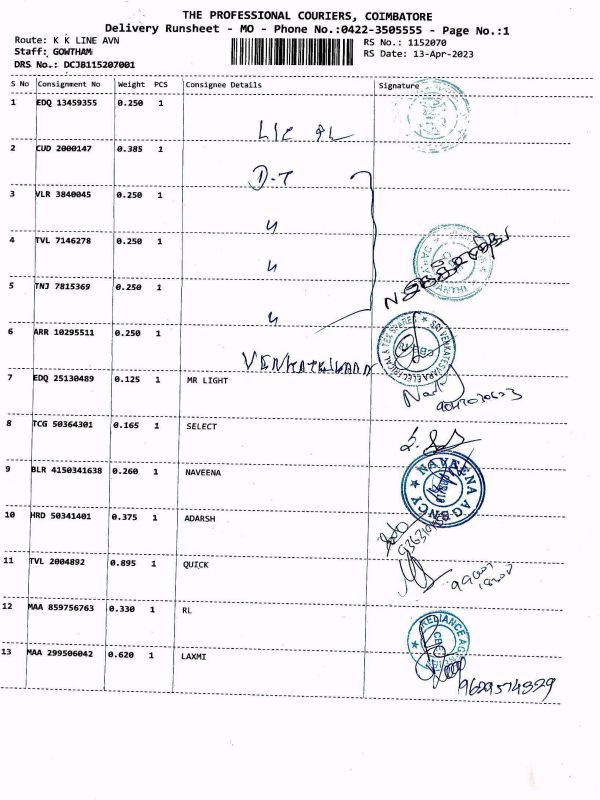 THE PROFESSIONAL COURIERS, COIMBATORE
Delivery Runsheet - MO - Phone No.:0422-3505555 - Page No.:1
Route: K K LINE AVN
RS No.: 1152070
Staff: GOWTHAM
RS Date: 13-Apr-2023
DRS No.: DCJB115207001
S No Consignment No Weight PCS Consignee Details Signature
1 EDQ 13459355 0.250 1
LIC
2 CUD 2000147 0.385 1 D.T
3 VLR 3840045 0.250 1 "
4 TVL 7146278 0.250 1 "
5 TNJ 7815369 0.250 1 "
6 ARR 10295511 0.250 1
7 EDQ 25130489 0.125 1 MR LIGHT
8 TCG 50364301 0.165 1 SELECT
9 BLR 4150341638 0.260 1 NAVEENA NAVEENA AGENCY
10 HRD 50341401 0.375 1 ADARSH
11 TVL 2004892 0.895 1 QUICK
12 MAA 859756763 0.330 1 RL
RELIANCE CBE
13 MAA 299506042 0.620 1 LAXMI
9629574829